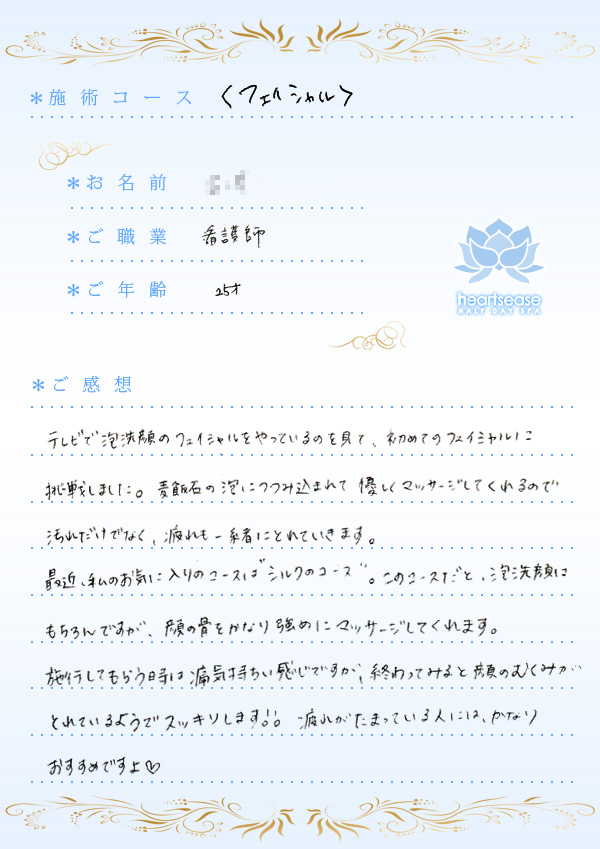 *施術コース 〈フェイシャル〉
*お名前
*ご職業 看護師
*ご年齢 25才
heartsease
HALF DAY SPA
*ご感想
テレビで泡洗顔のフェイシャルをやっているのを見て、初めてのフェイシャルに
挑戦しました。麦飯石の泡につつみ込まれて優しくマッサージしてくれるので
汚れだけでなく、疲れも一緒にとれていきます。
最近、私のお気に入りのコースは"シルクのコース"。このコースだと、泡洗顔は
もちろんですが、顔の骨をかなり強めにマッサージしてくれます。
施行してもらう時は痛気持ちい感じですが、終わってみると顔のむくみが
とれているようでスッキリします!!。疲れがたまっている人には、かなり
おすすめですよ♡